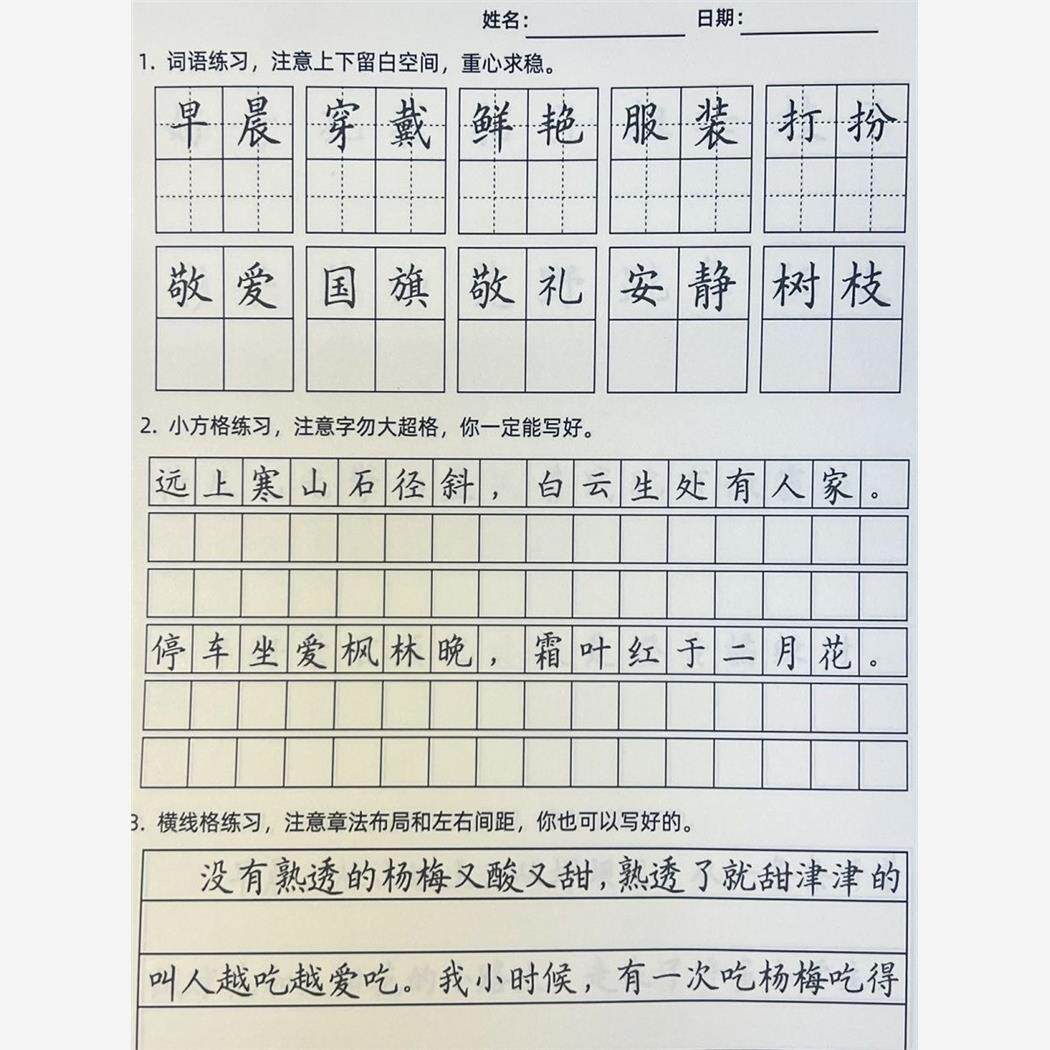 姓名： 日期：
1. 词语练习，注意上下留白空间，重心求稳。
早晨 穿戴 鲜艳 服装 打扮
敬爱 国旗 敬礼 安静 树枝
2. 小方格练习，注意字勿大超格，你一定能写好。
远上寒山石径斜，白云生处有人家。
停车坐爱枫林晚，霜叶红于二月花。
3. 横线格练习，注意章法布局和左右间距，你也可以写好的。
没有熟透的杨梅又酸又甜，熟透了就甜津津的
叫人越吃越爱吃。我小时候，有一次吃杨梅吃得